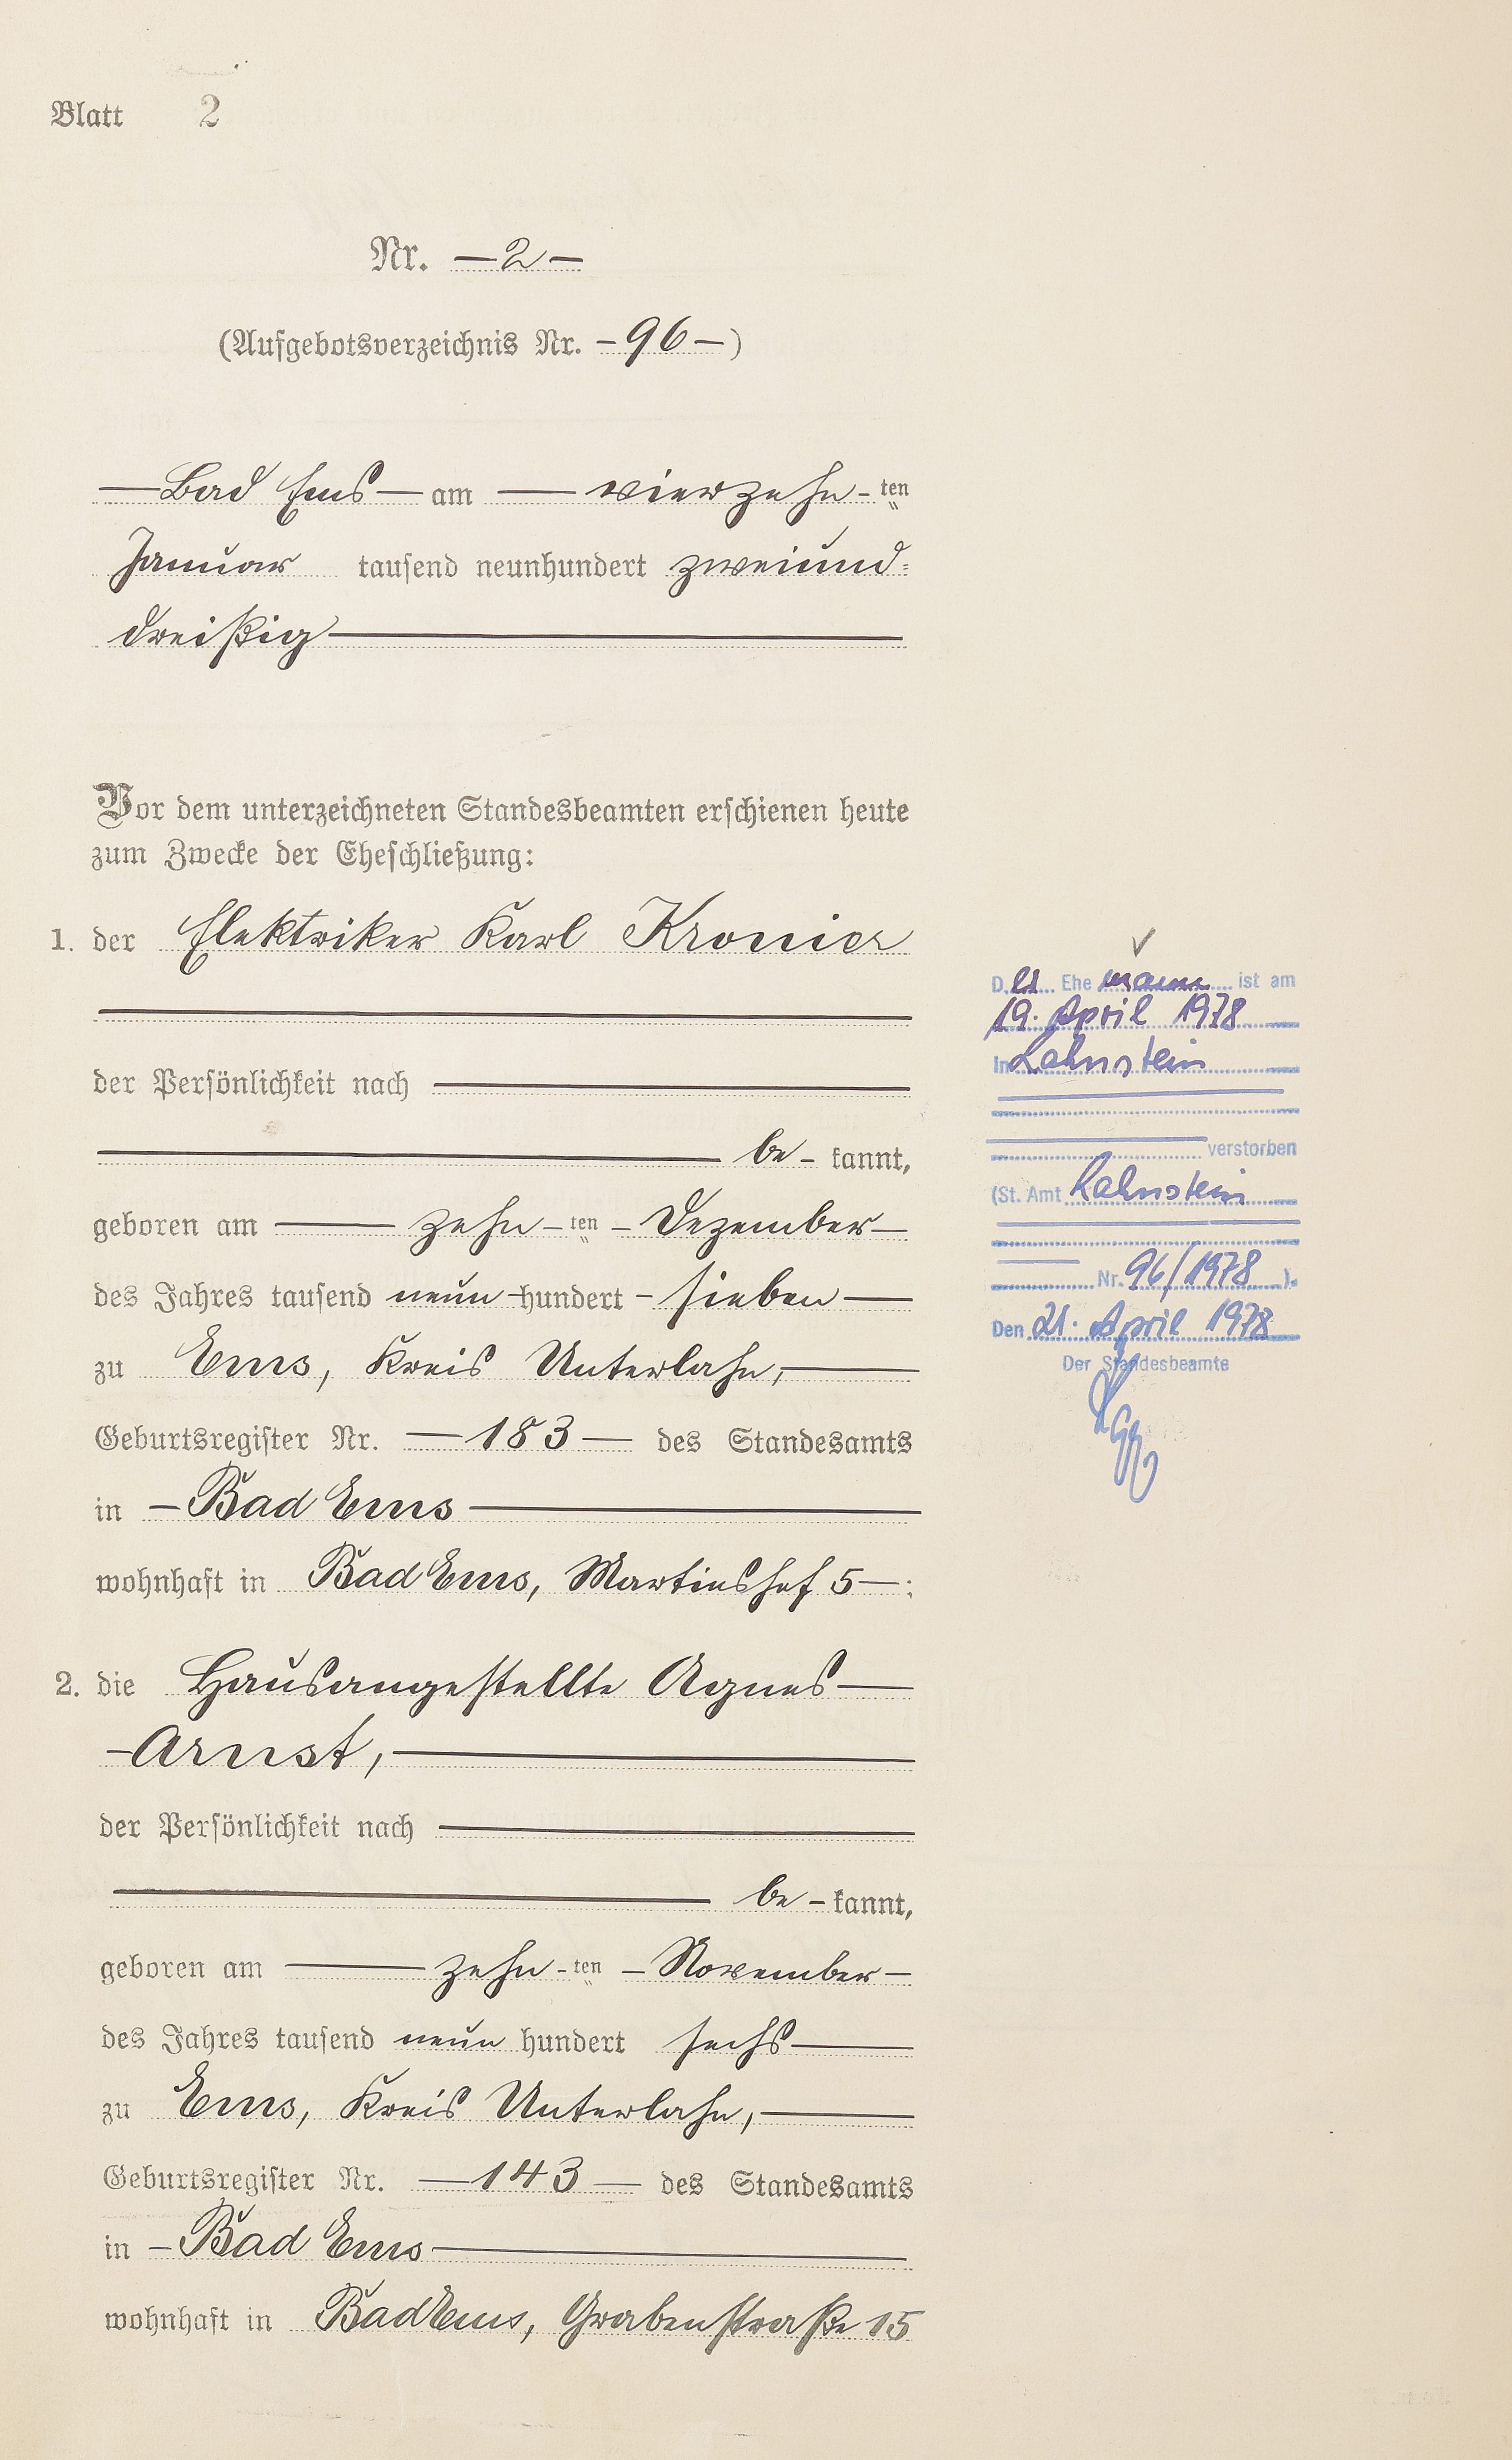 Blatt 2
Nr. — 2 —
(Aufgebotsverzeichnis Nr. — 96 —)
— Bad Ems — am — vierzehn - ten
Januar tausend neunhundert zweiund=
dreißig —
Vor dem unterzeichneten Standesbeamten erschienen heute
zum Zwecke der Eheschließung:
1. der Elektriker Karl Kronier
der Persönlichkeit nach
be - kannt,
geboren am — zehn - ten - Dezember —
des Jahres tausend neun - hundert - sieben —
zu Ems, Kreis Unterlahn, —
Geburtsregister Nr. — 183 — des Standesamts
in — Bad Ems —
wohnhaft in Bad Ems, Martinshof 5 — ;
2. die Hausangestellte Agnes —
— Arnst, —
der Persönlichkeit nach
be - kannt,
geboren am — zehn - ten — November —
des Jahres tausend neun hundert sechs —
zu Ems, Kreis Unterlahn, —
Geburtsregister Nr. — 143 — des Standesamts
in — Bad Ems —
wohnhaft in Bad Ems, Grabenstraße 15
D. er Ehe mann ist am
19. April 1978
in Lahnstein
verstorben
(St. Amt Lahnstein
Nr. 96/1978 ).
Den 21. April 1978
Der Standesbeamte